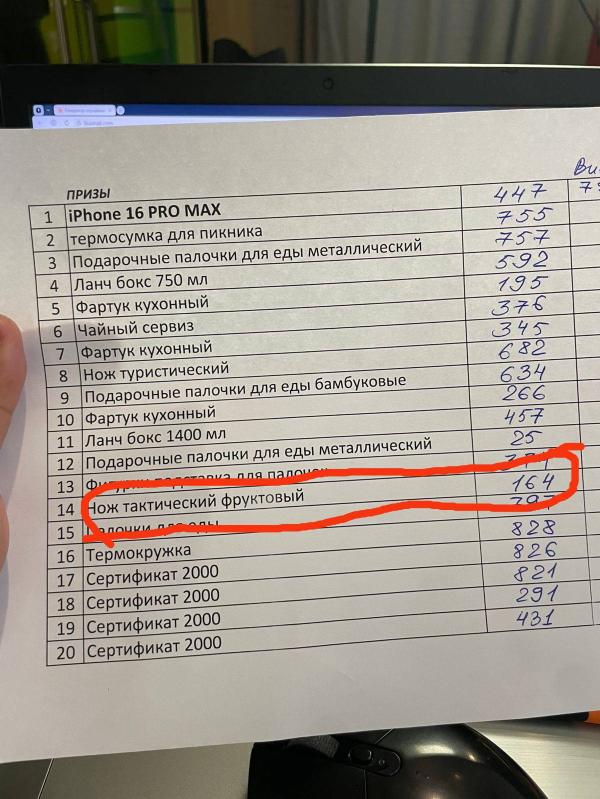 ПРИЗЫ
1 iPhone 16 PRO MAX 447
2 термосумка для пикника 755
3 Подарочные палочки для еды металлический 757
4 Ланч бокс 750 мл 592
5 Фартук кухонный 195
6 Чайный сервиз 376
7 Фартук кухонный 345
8 Нож туристический 682
9 Подарочные палочки для еды бамбуковые 634
10 Фартук кухонный 266
11 Ланч бокс 1400 мл 457
12 Подарочные палочки для еды металлический 25
13 подставка для палочек
14 Нож тактический фруктовый 164
15 Палочки для еды
16 Термокружка 828
17 Сертификат 2000 826
18 Сертификат 2000 821
19 Сертификат 2000 291
20 Сертификат 2000 431